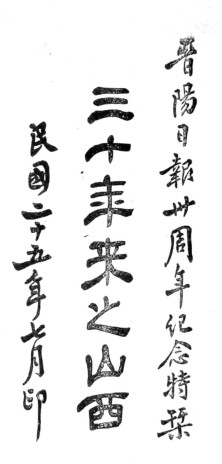 晋陽日報卅周年纪念特栞
三十年来之山西
民國二十五年七月印